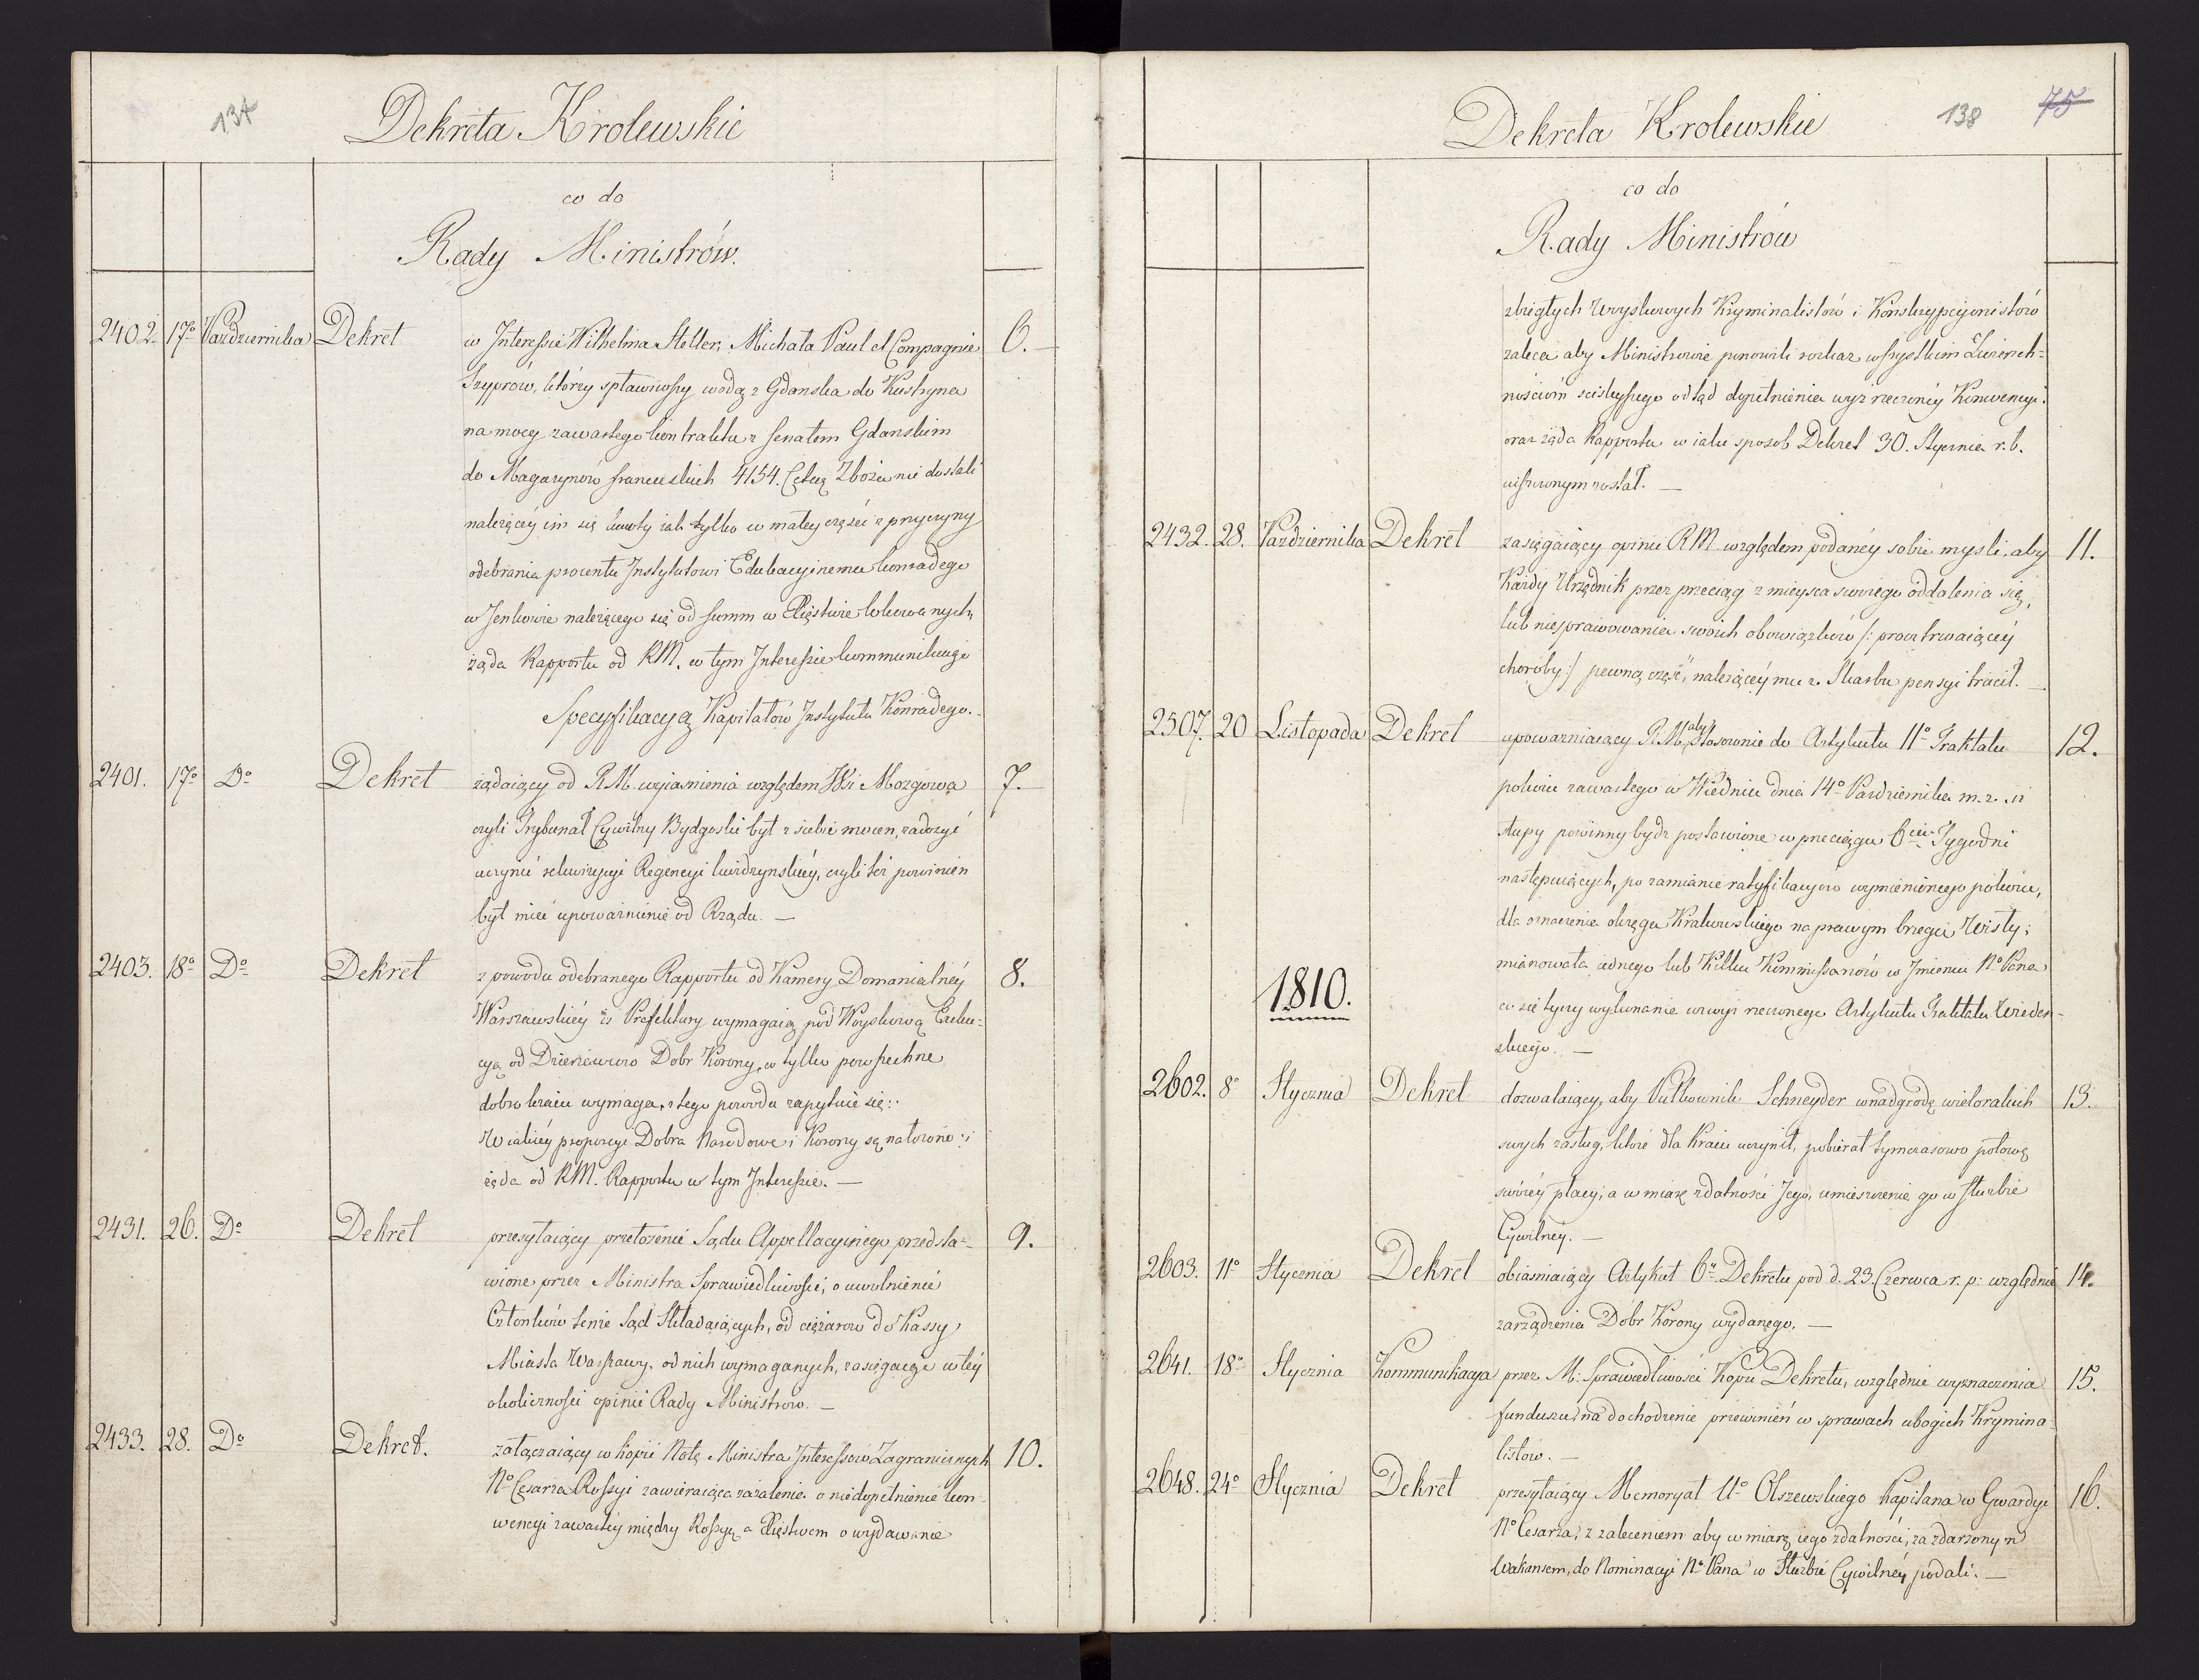 137
Dekreta Krolewskie
co do
Rady Ministrów.
2402. 17º Pazdziernika Dekret w Interessie Wilhelma Steller, Michała Paul et Compagnie 6.
Szyprów, którzy spławiwszy wodą z Gdanska do Kustryna
na mocy zawartego kontraktu z Senatem Gdanskim
do Magazynów francuskich 4154. Cetną Zboża nie dostali
należącéy im się kwoty iak tylko w małey części z przyczyny
odebrania procentu Instytutowi Edukacyinemu konradego
w Jenkowie należącego się od summ w Xięstwie lokowanych,
żąda Rapportu od RM. w tym Interessie kommunikuje
Specyfikacyą Kapitałów Instytutu Konradego.
2401. 17º Dº Dekret żądaiący od R.M. wyiasnienia względem Wsi Mozgowa 7.
czyli Trybunał Cywilny Bydgoski był z siebie mocen, zadosyć
uczynić rekwizycyi Regencyi kwidzynskiéy, czyli też powinien
był mieć upoważnienie od Rządu. —
2403. 18º Dº Dekret z powodu odebranego Rapportu od Kamery Domanialnéy 8.
Warszawskiéy iż Prefektury wymagaią pod Woyskową Exeku=
cyą od Dzierżawców Dobr Korony, co tylko powszechne
dobro kraiu wymaga, z tego powodu zapytuie się:
W iakiéy proporcyi Dobra Narodowe i Korony są nałożone: i
żąda od RM. Rapportu w tym Interessie. —
2431. 26. Dº Dekret przesyłaiący przełożenie Sądu Appellacyinego przedsta=. 9.
wione przez Ministra Sprawiedliwości, o uwolnienie
Członków tenże Sąd składaiących, od ciężarow do Kassy
Miasta Warszawy, od nich wymaganych, zasięgaiąc w téy
okoliczności opinii Rady Ministrow. —
2433. 28. Dº Dekret. załączaiący w kopii Notę Ministra Interessow Zagranicznych 10.
Nº Cesarza Rossyi zawieraiąca zażalenie o niedopełnienie kon-
wencyi zawartéy między Rossyą a Xięstwem o wydawanie
138 75
Dekreta Krolewskie
co do
Rady Ministrów
zbiegłych Woyskowych Kryminalistów i Konskrypcyonistów
zaleca aby Ministrowie ponowili rozkaz wszystkim Zwierzch=
nościom scisleyszego odtąd dopełnienia wyż rzeczonéy Konwencyi.
oraz żąda Rapportu w iaki sposob Dekret 30. Stycznia r. b.
uiszczonym został. —
2432. 28. Pazdziernika Dekret zasięgaiący opinii RM względem podanéy sobie mysli, aby 11.
Każdy Urzędnik przez przeciąg z mieysca swoiego oddalenia się,
lub niesprawowania swoich obowiązków /: procz trwaiącéy
choroby :/ pewną część, należącéy mu z Skarbu pensyi tracił. —
2507. 20 Listopada Dekret upoważniaiący R.M. aby stosownie do Artykułu 11º Traktatu 12.
pokoiu zawartego w Wiedniu dnia 14º Pazdziernika m. r. iż
słupy powinny bydz postawione w przeciągu 6ciu Tygodni
następuiących, po zamianie ratyfikacyow wymienionego pokoiu,
dla oznaczenia okręgu Krakowskiego na prawym brzegu Wisły;
mianowała iednego lub kilku Kommissarzów w Imieniu Nº Pana
co się tyczy wykonania wwyż rzeczonego Artykułu Traktatu Wieden-
skiego. —
1810.
2602. 8º Stycznia Dekret dozwalaiący, aby Pułkownik Schneyder w nadgrodę wielorakich 13.
swych zasług, które dla Kraiu uczynił, pobierał tymczasowo połowę
swoiéy płacy; a w miarę zdatności Jego, umieszczenie go w służbie
Cywilney. —
2603. 11º Stycznia Dekret obiasniaiący Artykuł 6ty Dekretu pod d. 23. Czerwca r. p: względnie 14.
zarządzenia Dobr Korony wydanego. —
2641. 18º Stycznia Kommunikacya przez M: Sprawiedliwości Kopii Dekretu, względnie wyznaczenia 15.
funduszu, na dochodzenie przewinień w sprawach ubogich Krymina-
listów. —
2648. 24º Stycznia Dekret przesyłaiący Memoryał Uº Olszewskiego Kapitana w Gwardyi 16.
Nº Cesarza, z zaleceniem aby w miarę iego zdatności, za zdarzonym
Wakansem, do Nominacyi Nº Pana w Służbie Cywilnéy podali. —